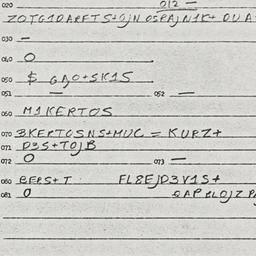 020 012 —
ZOTG1DARFTS+OJN OSPAJN1K+ OUA
030 —
040 O
050 $ GAO+SK1S
051 — 052 —
060 M1KERTOS
070 3KERTOSNS+MUC = KURZ+
071 D3S+TOJB
072 O 073 —
080 BERS+T FL8EJD3V1S+
081 O